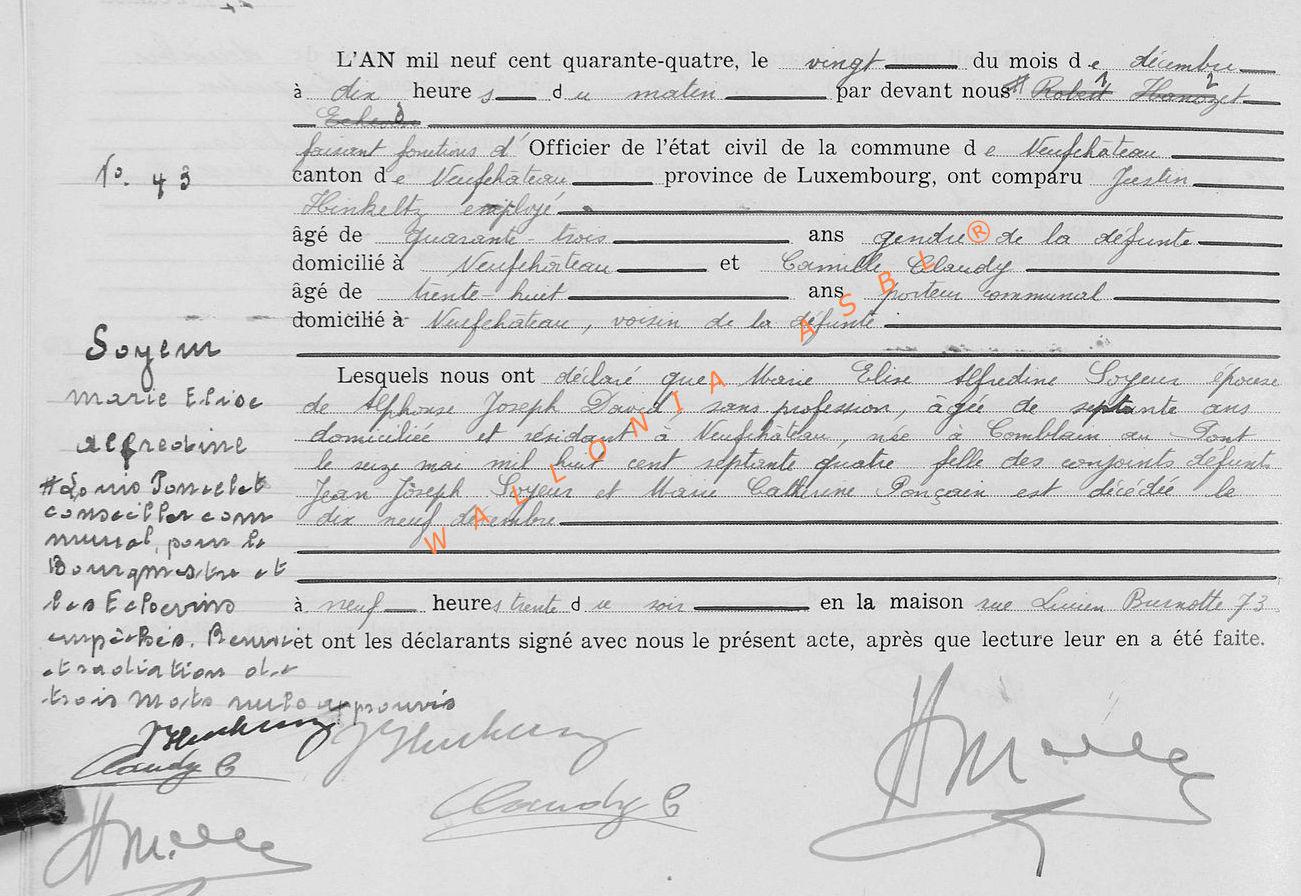 L'AN mil neuf cent quarante-quatre, le vingt du mois de décembre
à dix heures du matin par devant nous # Robert 1 Hanozet 2
Echevin 3
faisant fonctions d' Officier de l'état civil de la commune de Neufchâteau
canton de Neufchâteau province de Luxembourg, ont comparu Justin
Hinkeltz employé
âgé de quarante-trois ans gendre de la défunte
domicilié à Neufchâteau et Camille Claudy
âgé de trente-huit ans porteur communal
domicilié à Neufchâteau, voisin de la défunte
Lesquels nous ont déclaré que Marie Elise Alfredine Soyeur épouse
de Alphonse Joseph David, sans profession, âgée de septante ans
domiciliée et résidant à Neufchâteau, née à Comblain au Pont
le seize mai mil huit cent septante quatre fille des conjoints défunts
Jean Joseph Soyeur et Marie Catherine Ponçain est décédée le
dix neuf décembre
à neuf heures trente du soir en la maison rue Lucien Burnotte 73
et ont les déclarants signé avec nous le présent acte, après que lecture leur en a été faite.
No. 43
Soyeur
Marie Elise
Alfredine
# Louis Poncelet
conseiller com
munal, pour le
Bourgmestre et
les Echevins
empêchés. Renvoi
et radiation de
trois mots nuls approuvés
Claudy C
Claudy C
WALLONIA ASBL ®